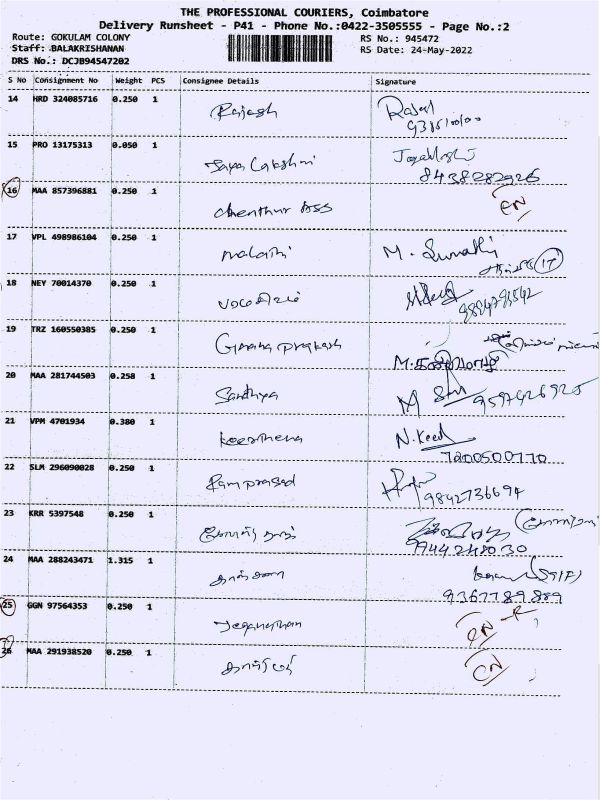 THE PROFESSIONAL COURIERS, Coimbatore
Delivery Runsheet - P41 - Phone No.:0422-3505555 - Page No.:2
Route: GOKULAM COLONY RS No.: 945472
Staff: BALAKRISHANAN RS Date: 24-May-2022
DRS No.: DCJB94547202
S No Consignment No Weight PCS Consignee Details Signature
14 HRD 324085716 0.250 1 Rajesh
15 PRO 13175313 0.050 1 Jaya Lakshmi
8438282926
16 MAA 857396881 0.250 1 chenthur ASS CN
17 VPL 498986104 0.250 1 malathi M. Sumathi
17
18 NEY 70014370 0.250 1
19 TRZ 160550385 0.250 1 Gnana prakash
20 MAA 281744503 0.258 1 Santhya 9597426925
21 VPM 4701934 0.380 1 keerthena N.Keed
7200500770
22 SLM 296090028 0.250 1 Ram prasad
9842736694
23 KRR 5397548 0.250 1
9944248030
24 MAA 288243471 1.315 1
9367789889
25 GGN 97564353 0.250 1 Jeganathan CN
26 MAA 291938520 0.250 1 CN